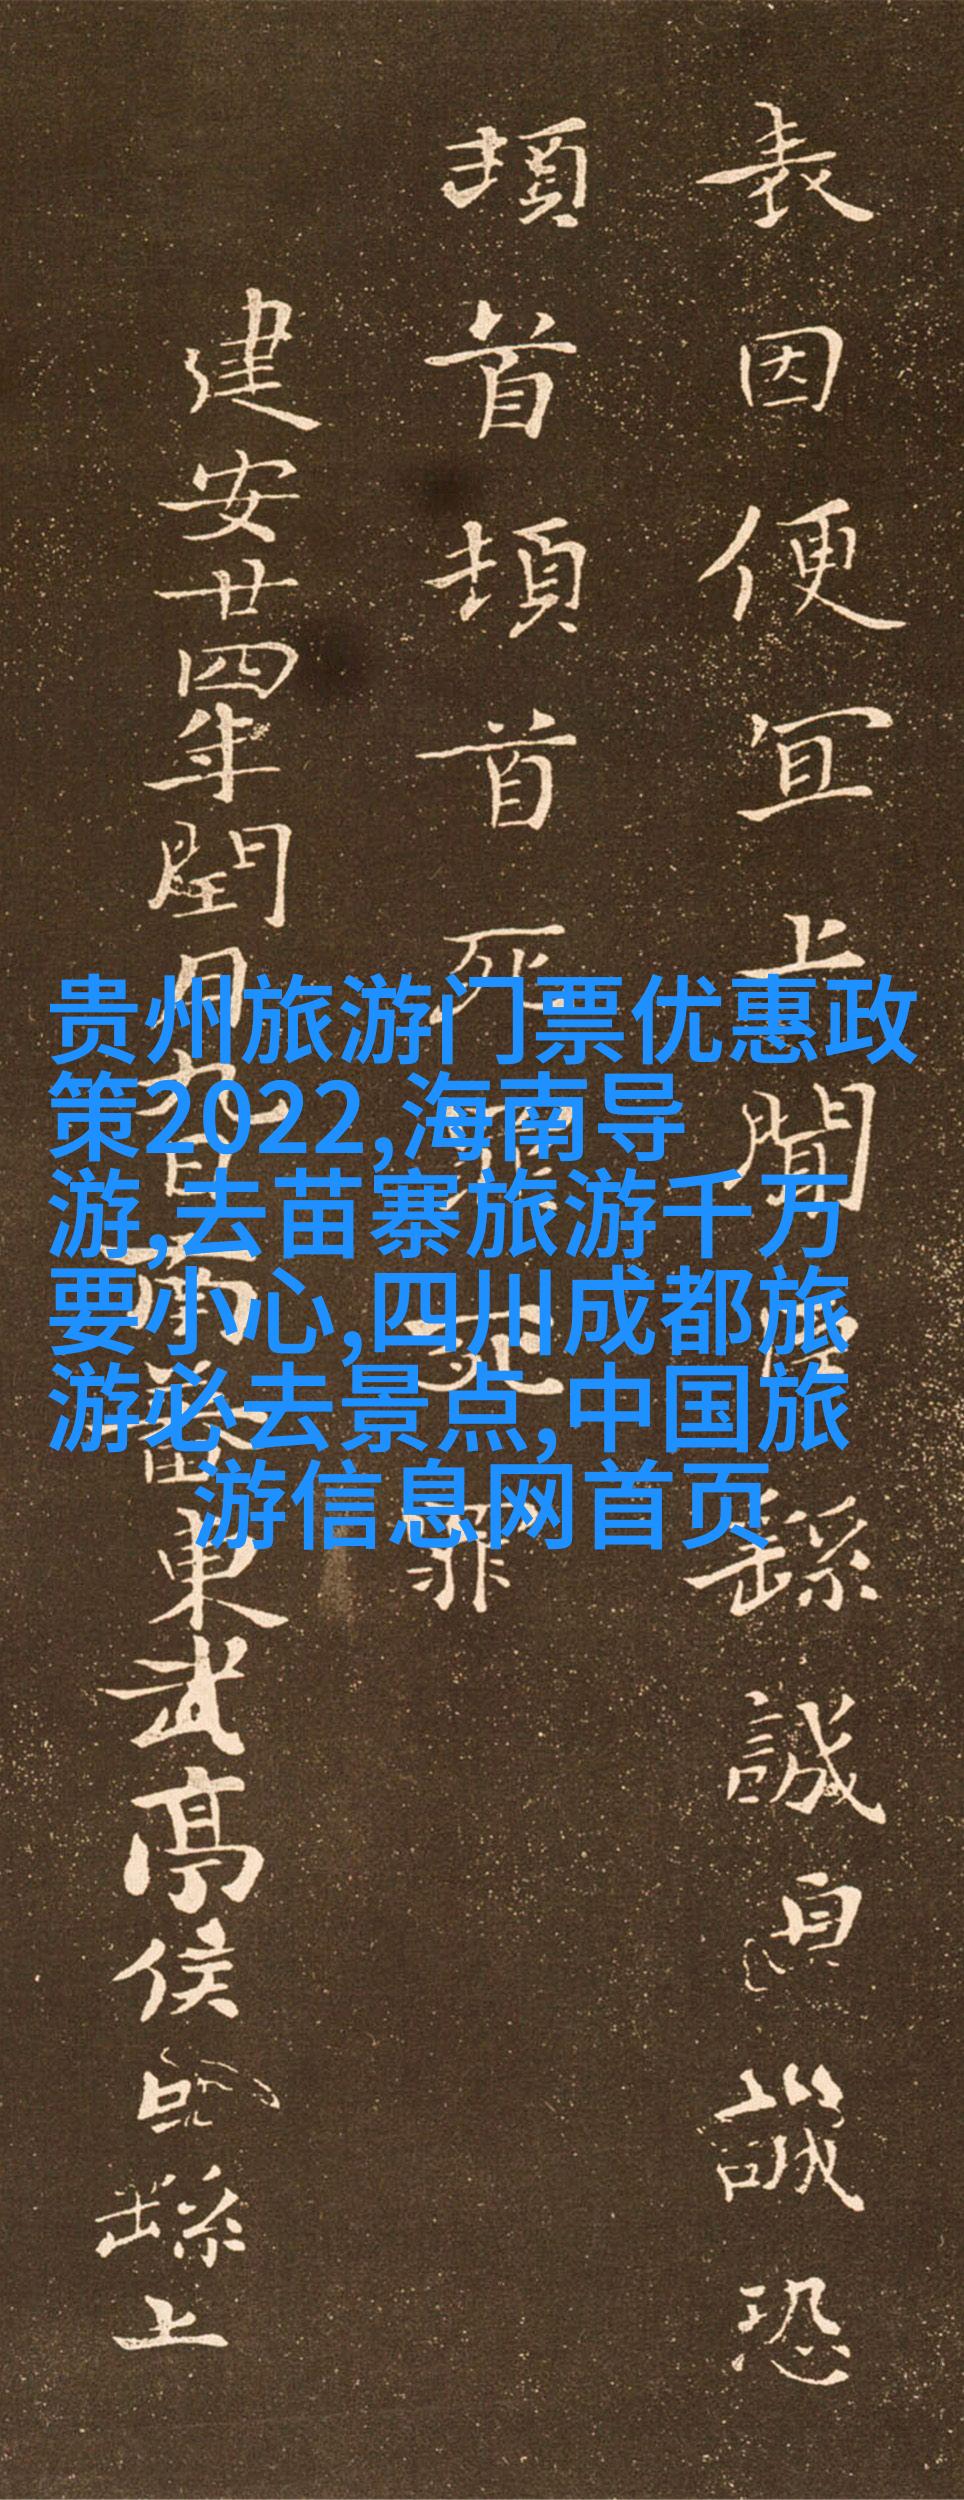 表因便宜上聞臣繇誠皇誠恐
頓首頓首死罪死罪
建安廿四年閏月九日南蕃東武亭侯臣繇上
贵州旅游门票优惠政
策2022,海南导
游,去苗寨旅游千万
要小心,四川成都旅
游必去景点,中国旅
游信息网首页